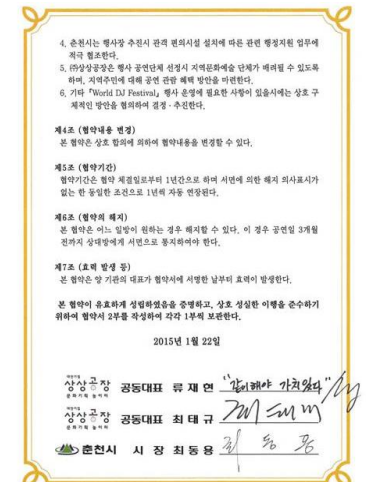 4. 춘천시는 행사장 추진시 관객 편의시설 설치에 따른 관련 행정지원 업무에
적극 협조한다.
5. ㈜상상공장은 행사 공연단체 선정시 지역문화예술 단체가 배려될 수 있도록
하며, 지역주민에 대해 공연 관람 혜택 방안을 마련한다.
6. 기타 『World DJ Festival』 행사 운영에 필요한 사항이 있을시에는 상호 구
체적인 방안을 협의하여 결정·추진한다.
제4조 (협약내용 변경)
본 협약은 상호 합의에 의하여 협약내용을 변경할 수 있다.
제5조 (협약기간)
협약기간은 협약 체결일로부터 1년간으로 하며 서면에 의한 해지 의사표시가
없는 한 동일한 조건으로 1년씩 자동 연장된다.
제6조 (협약의 해지)
본 협약은 어느 일방이 원하는 경우 해지할 수 있다. 이 경우 공연일 3개월
전까지 상대방에게 서면으로 통지하여야 한다.
제7조 (효력 발생 등)
본 협약은 양 기관의 대표가 협약서에 서명한 날부터 효력이 발생한다.
본 협약이 유효하게 성립하였음을 증명하고, 상호 성실한 이행을 준수하기
위하여 협약서 2부를 작성하여 각각 1부씩 보관한다.
2015년 1월 22일
상상공장 공동대표 류재현 "같이해야 가치있다"
문화기획 놀이터
상상공장 공동대표 최태규
문화기획 놀이터
춘천시 시장 최동용 최동용